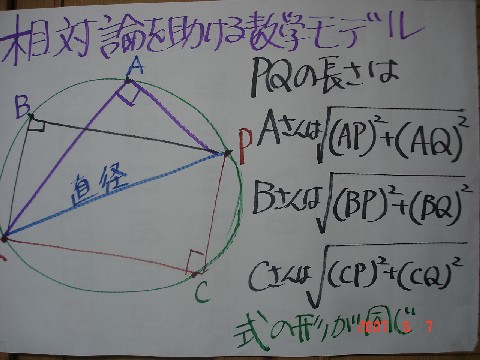 相対論を助ける数学モデル
A
B
P
C
直径
PQの長さは
Aさんは√(AP)²+(AQ)²
Bさんは√(BP)²+(BQ)²
Cさんは√(CP)²+(CQ)²
式の形が同じ